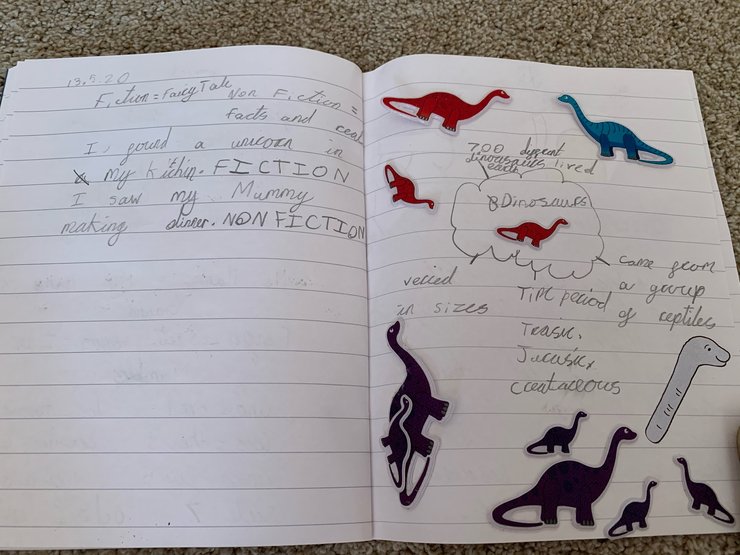 13.5.20
Fiction = Faicy Tale Non Fiction =
facts and real
I found a unicorn in
my kithin. FICTION
I saw my Mummy
making dinner. NON FICTION
700 dyerent
dinousauls lived
each
Dinosaurs
came from
a group
of reptiles
veried
in sizes
Time period
Trasik,
Jurasik,
creataceous